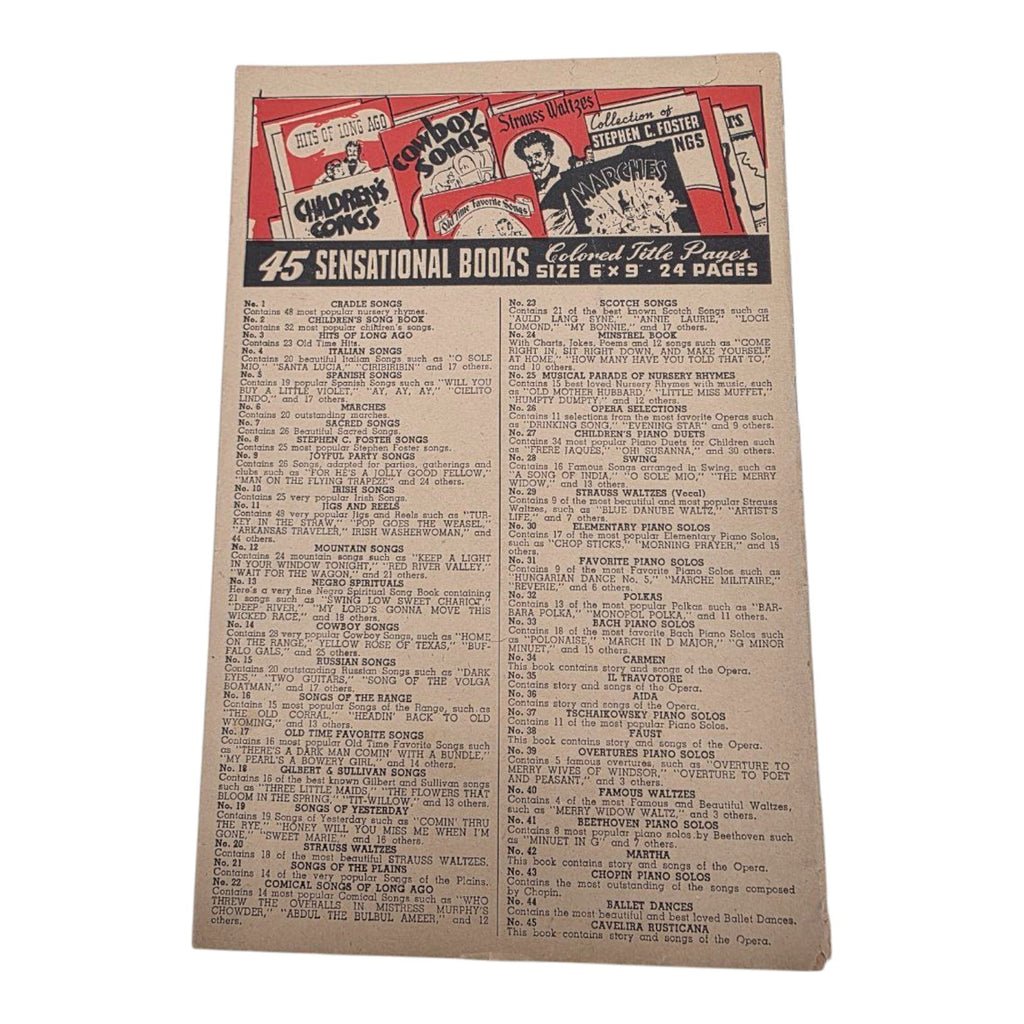 HITS OF LONG AGO
CHILDREN'S
SONGS
Cowboy
Songs
Old Time Favorite Songs
Strauss Waltzes
Collection of
STEPHEN C. FOSTER
NGS
MARCHES
T'S
45 SENSATIONAL BOOKS Colored Title Pages
SIZE 6" x 9" · 24 PAGES
No. 1 CRADLE SONGS
Contains 48 most popular nursery rhymes.
No. 2 CHILDREN'S SONG BOOK
Contains 32 most popular children's songs.
No. 3 HITS OF LONG AGO
Contains 23 Old Time Hits.
No. 4 ITALIAN SONGS
Contains 20 beautiful Italian Songs such as "O SOLE
MIO," "SANTA LUCIA," "CIRIBIRIBIN" and 17 others.
No. 5 SPANISH SONGS
Contains 19 popular Spanish Songs such as "WILL YOU
BUY A LITTLE VIOLET," "AY, AY, AY," "CIELITO
LINDO," and 17 others.
No. 6 MARCHES
Contains 20 outstanding marches.
No. 7 SACRED SONGS
Contains 26 Beautiful Sacred Songs.
No. 8 STEPHEN C. FOSTER SONGS
Contains 25 most popular Stephen Foster songs.
No. 9 JOYFUL PARTY SONGS
Contains 26 Songs, adapted for parties, gatherings and
clubs such as "FOR HE'S A JOLLY GOOD FELLOW,"
"MAN ON THE FLYING TRAPEZE" and 24 others.
No. 10 IRISH SONGS
Contains 25 very popular Irish Songs.
No. 11 JIGS AND REELS
Contains 48 very popular Jigs and Reels such as "TUR-
KEY IN THE STRAW," "POP GOES THE WEASEL,"
"ARKANSAS TRAVELER," IRISH WASHERWOMAN," and
44 others.
No. 12 MOUNTAIN SONGS
Contains 24 mountain songs such as "KEEP A LIGHT
IN YOUR WINDOW TONIGHT," "RED RIVER VALLEY,"
"WAIT FOR THE WAGON," and 21 others.
No. 13 NEGRO SPIRITUALS
Here's a very fine Negro Spiritual Song Book containing
21 songs such as "SWING LOW SWEET CHARIOT,"
"DEEP RIVER," "MY LORD'S GONNA MOVE THIS
WICKED RACE," and 18 others.
No. 14 COWBOY SONGS
Contains 28 very popular Cowboy Songs, such as "HOME
ON THE RANGE," YELLOW ROSE OF TEXAS," "BUF-
FALO GALS," and 25 others.
No. 15 RUSSIAN SONGS
Contains 20 outstanding Russian Songs such as "DARK
EYES," "TWO GUITARS," "SONG OF THE VOLGA
BOATMAN," and 17 others.
No. 16 SONGS OF THE RANGE
Contains 15 most popular Songs of the Range, such as
"THE OLD CORRAL," "HEADIN' BACK TO OLD
WYOMING," and 13 others.
No. 17 OLD TIME FAVORITE SONGS
Contains 16 most popular Old Time Favorite Songs such
as "THERE'S A DARK MAN COMIN' WITH A BUNDLE,"
"MY PEARL'S A BOWERY GIRL," and 14 others.
No. 18 GILBERT & SULLIVAN SONGS
Contains 16 of the best known Gilbert and Sullivan songs
such as "THREE LITTLE MAIDS," "THE FLOWERS THAT
BLOOM IN THE SPRING," "TIT-WILLOW," and 13 others.
No. 19 SONGS OF YESTERDAY
Contains 19 Songs of Yesterday such as "COMIN' THRU
THE RYE," "HONEY WILL YOU MISS ME WHEN I'M
GONE," "SWEET MARIE" and 16 others.
No. 20 STRAUSS WALTZES
Contains 18 of the most beautiful STRAUSS WALTZES.
No. 21 SONGS OF THE PLAINS
Contains 14 of the very popular Songs of the Plains.
No. 22 COMICAL SONGS OF LONG AGO
Contains 14 most popular Comical Songs such as "WHO
THREW THE OVERALLS IN MISTRESS MURPHY'S
CHOWDER," "ABDUL THE BULBUL AMEER," and 12
others.
No. 23 SCOTCH SONGS
Contains 21 of the best known Scotch Songs such as
"AULD LANG SYNE," "ANNIE LAURIE," "LOCH
LOMOND," "MY BONNIE," and 17 others.
No. 24 MINSTREL BOOK
With Charts, Jokes, Poems and 12 songs such as "COME
RIGHT IN, SIT RIGHT DOWN, AND MAKE YOURSELF
AT HOME," "HOW MANY HAVE YOU TOLD THAT TO,"
and 10 others.
No. 25 MUSICAL PARADE OF NURSERY RHYMES
Contains 15 best loved Nursery Rhymes with music, such
as "OLD MOTHER HUBBARD," "LITTLE MISS MUFFET,"
"HUMPTY DUMPTY," and 12 others.
No. 26 OPERA SELECTIONS
Contains 11 selections from the most favorite Operas such
as "DRINKING SONG," "EVENING STAR" and 9 others.
No. 27 CHILDREN'S PIANO DUETS
Contains 34 most popular Piano Duets for Children such
as "FRERE JAQUES," "OH! SUSANNA," and 30 others.
No. 28 SWING
Contains 16 Famous Songs arranged in Swing, such as
"A SONG OF INDIA," "O SOLE MIO," "THE MERRY
WIDOW," and 13 others.
No. 29 STRAUSS WALTZES (Vocal)
Contains 9 of the most beautiful and most popular Strauss
Waltzes, such as "BLUE DANUBE WALTZ," "ARTIST'S
LIFE," and 7 others.
No. 30 ELEMENTARY PIANO SOLOS
Contains 17 of the most popular Elementary Piano Solos,
such as "CHOP STICKS," "MORNING PRAYER," and 15
others.
No. 31 FAVORITE PIANO SOLOS
Contains 9 of the most Favorite Piano Solos such as
"HUNGARIAN DANCE No. 5," "MARCHE MILITAIRE,"
"REVERIE," and 6 others.
No. 32 POLKAS
Contains 13 of the most popular Polkas such as "BAR-
BARA POLKA," "MONOPOL POLKA," and 11 others.
No. 33 BACH PIANO SOLOS
Contains 18 of the most favorite Bach Piano Solos such
as "POLONAISE," "MARCH IN D MAJOR," "G MINOR
MINUET," and 15 others.
No. 34 CARMEN
This book contains story and songs of the Opera.
No. 35 IL TRAVOTORE
Contains story and songs of the Opera.
No. 36 AIDA
Contains story and songs of the Opera.
No. 37 TSCHAIKOWSKY PIANO SOLOS
Contains 11 of the most popular Piano Solos.
No. 38 FAUST
This book contains story and songs of the Opera.
No. 39 OVERTURES PIANO SOLOS
Contains 5 famous overtures, such as "OVERTURE TO
MERRY WIVES OF WINDSOR," "OVERTURE TO POET
AND PEASANT," and 3 others.
No. 40 FAMOUS WALTZES
Contains 4 of the most Famous and Beautiful Waltzes,
such as "MERRY WIDOW WALTZ," and 3 others.
No. 41 BEETHOVEN PIANO SOLOS
Contains 8 most popular piano solos by Beethoven such
as "MINUET IN G" and 7 others.
No. 42 MARTHA
This book contains story and songs of the Opera.
No. 43 CHOPIN PIANO SOLOS
Contains the most outstanding of the songs composed
by Chopin.
No. 44 BALLET DANCES
Contains the most beautiful and best loved Ballet Dances.
No. 45 CAVELIRA RUSTICANA
This book contains story and songs of the Opera.